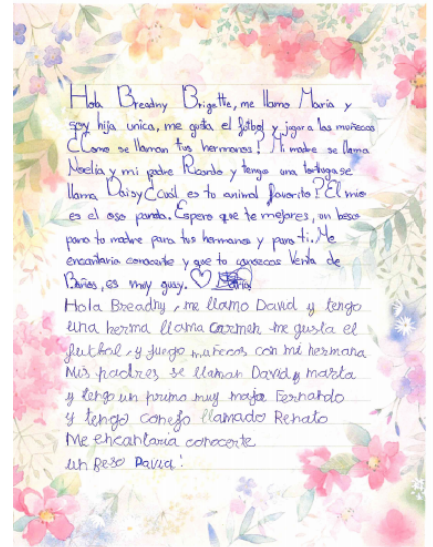 Hola Breadny Brigitte, me llamo María y
soy hija unica, me gusta el fútbol y jugar a las muñecas
¿Como se llaman tus hermanos? Mi madre se llama
Noelia y mi padre Ricardo y tengo una tortuga se
llama Daisy ¿cuál es tu animal favorito? El mio
es el oso panda. Espero que te mejores, un beso
para tu madre para tus hermanos y para ti. Me
encantaria conocerte y que tu conozcas Venta de
Baños, es muy guay. ♡
Hola Breadny, me llamo David y tengo
una herma llama Carmen me gusta el
futbol, y juego muñecos con mi hermana
Mis padres se llaman David y marta
y tengo un primo muy majo Fernando
y tengo conejo llamado Renato
Me encantaria conocerte
un Beso David!